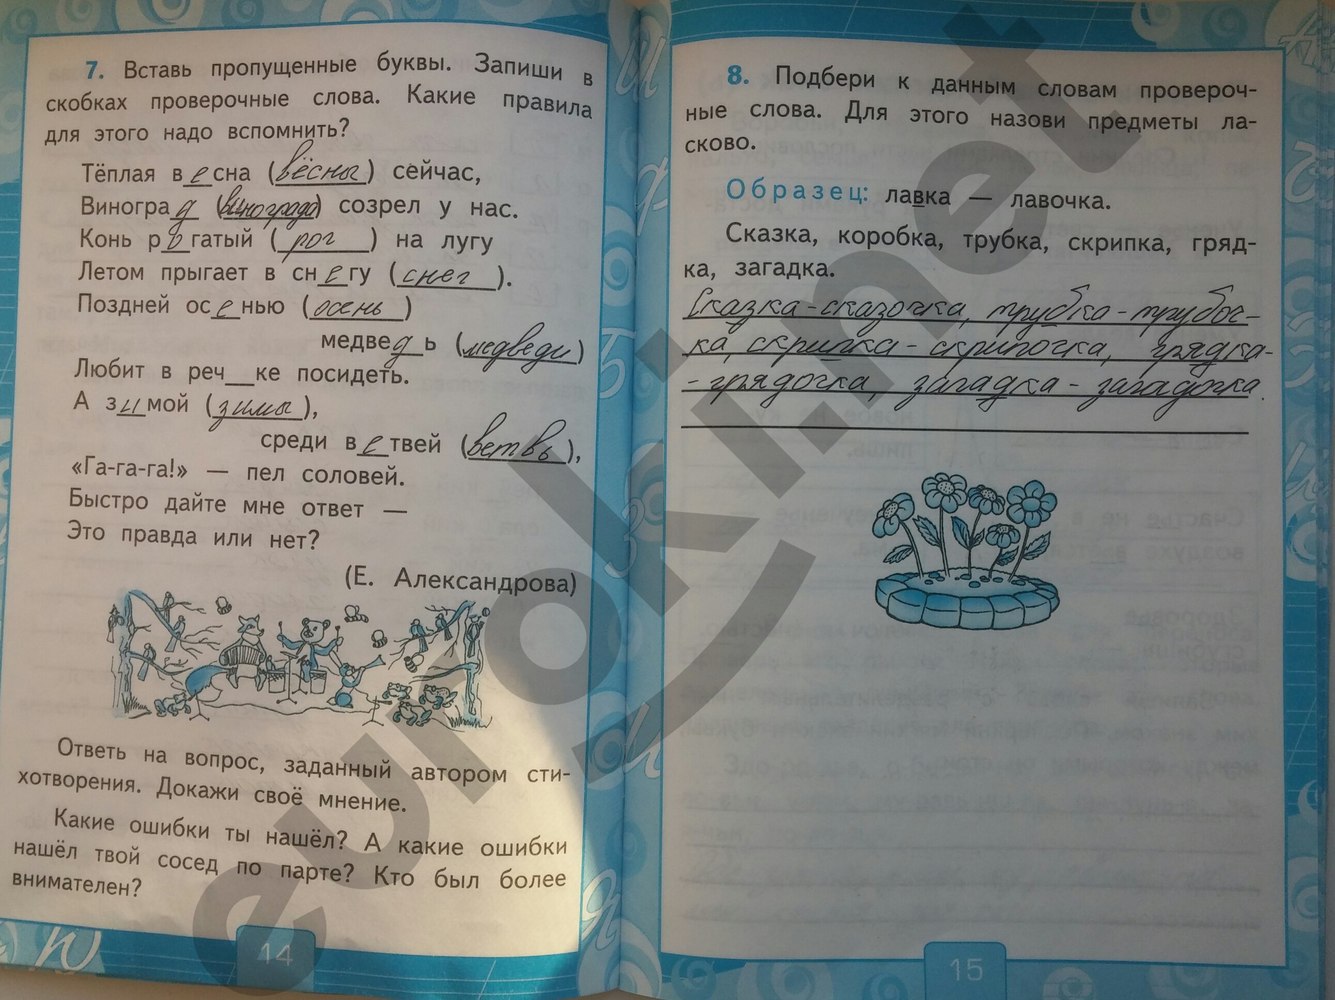 7. Вставь пропущенные буквы. Запиши в
скобках проверочные слова. Какие правила
для этого надо вспомнить?
Тёплая в_е_сна (вёсны) сейчас,
Виногра_д_ (винограда) созрел у нас.
Конь р_о_гатый (рог) на лугу
Летом прыгает в сн_е_гу (снег).
Поздней ос_е_нью (осень)
медве_д_ь (медведи)
Любит в реч__ке посидеть.
А з_и_мой (зимы),
среди в_е_твей (ветвь),
«Га-га-га!» — пел соловей.
Быстро дайте мне ответ —
Это правда или нет?
(Е. Александрова)
Ответь на вопрос, заданный автором сти-
хотворения. Докажи своё мнение.
Какие ошибки ты нашёл? А какие ошибки
нашёл твой сосед по парте? Кто был более
внимателен?
14
8. Подбери к данным словам провероч-
ные слова. Для этого назови предметы ла-
сково.
Образец: лавка — лавочка.
Сказка, коробка, трубка, скрипка, гряд-
ка, загадка.
Сказка - сказочка, трубка - трубоч-
ка, скрипка - скрипочка, грядка-
- грядочка, загадка - загадочка.
15
euroki.net